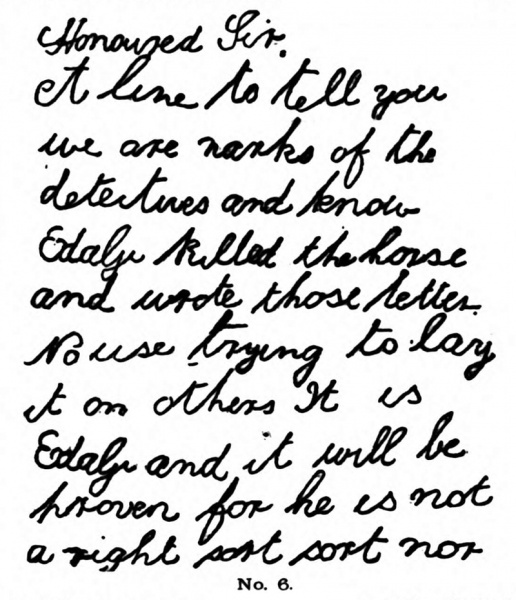 Honoured Sir.
A line to tell you
we are narks of the
detectives and know
Edalji killed the horse
and wrote those letter.
No use trying to lay
it on others It is
Edalji and it will be
proven for he is not
a right sort sort nor
No. 6.